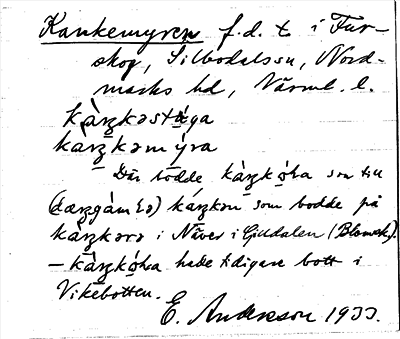 Kankemyren f.d. t. i Fur-
skog, Silbodals sn, Nord-
marks hd, Värml. l.
kàŋkəstɯ́ga
kàŋkəmýra
Där bodde kàŋkọ́ha som till
kàŋkən som bodde på
kàŋkərə i Näver i Gjuldalen (Blomsk.).
– kàŋkọ́ha hade tidigare bott i
Vikebotten.
E. Andersson 1933.